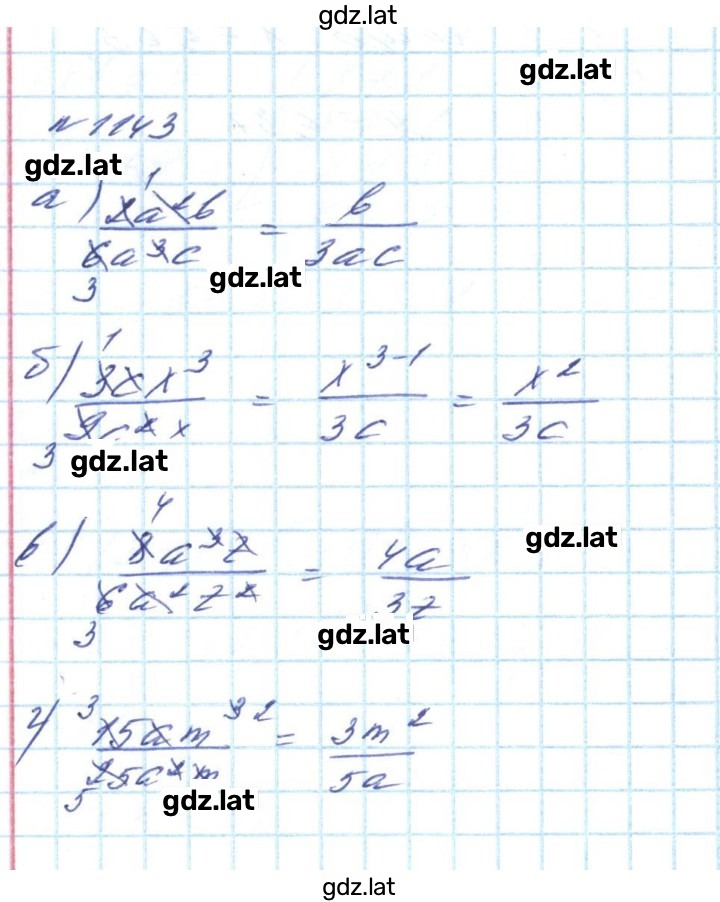 gdz.lat
gdz.lat
№ 1143
gdz.lat
а) 2a²b / 6a³c = b / 3ac
1
3
gdz.lat
б) 3cx³ / 9c²x = x³⁻¹ / 3c = x² / 3c
1
3
gdz.lat
в) 8a³z / 6a²z² = 4a / 3z
4
3
gdz.lat
gdz.lat
г) 15am³ / 25a²m = 3m² / 5a
3 2
5
gdz.lat
gdz.lat